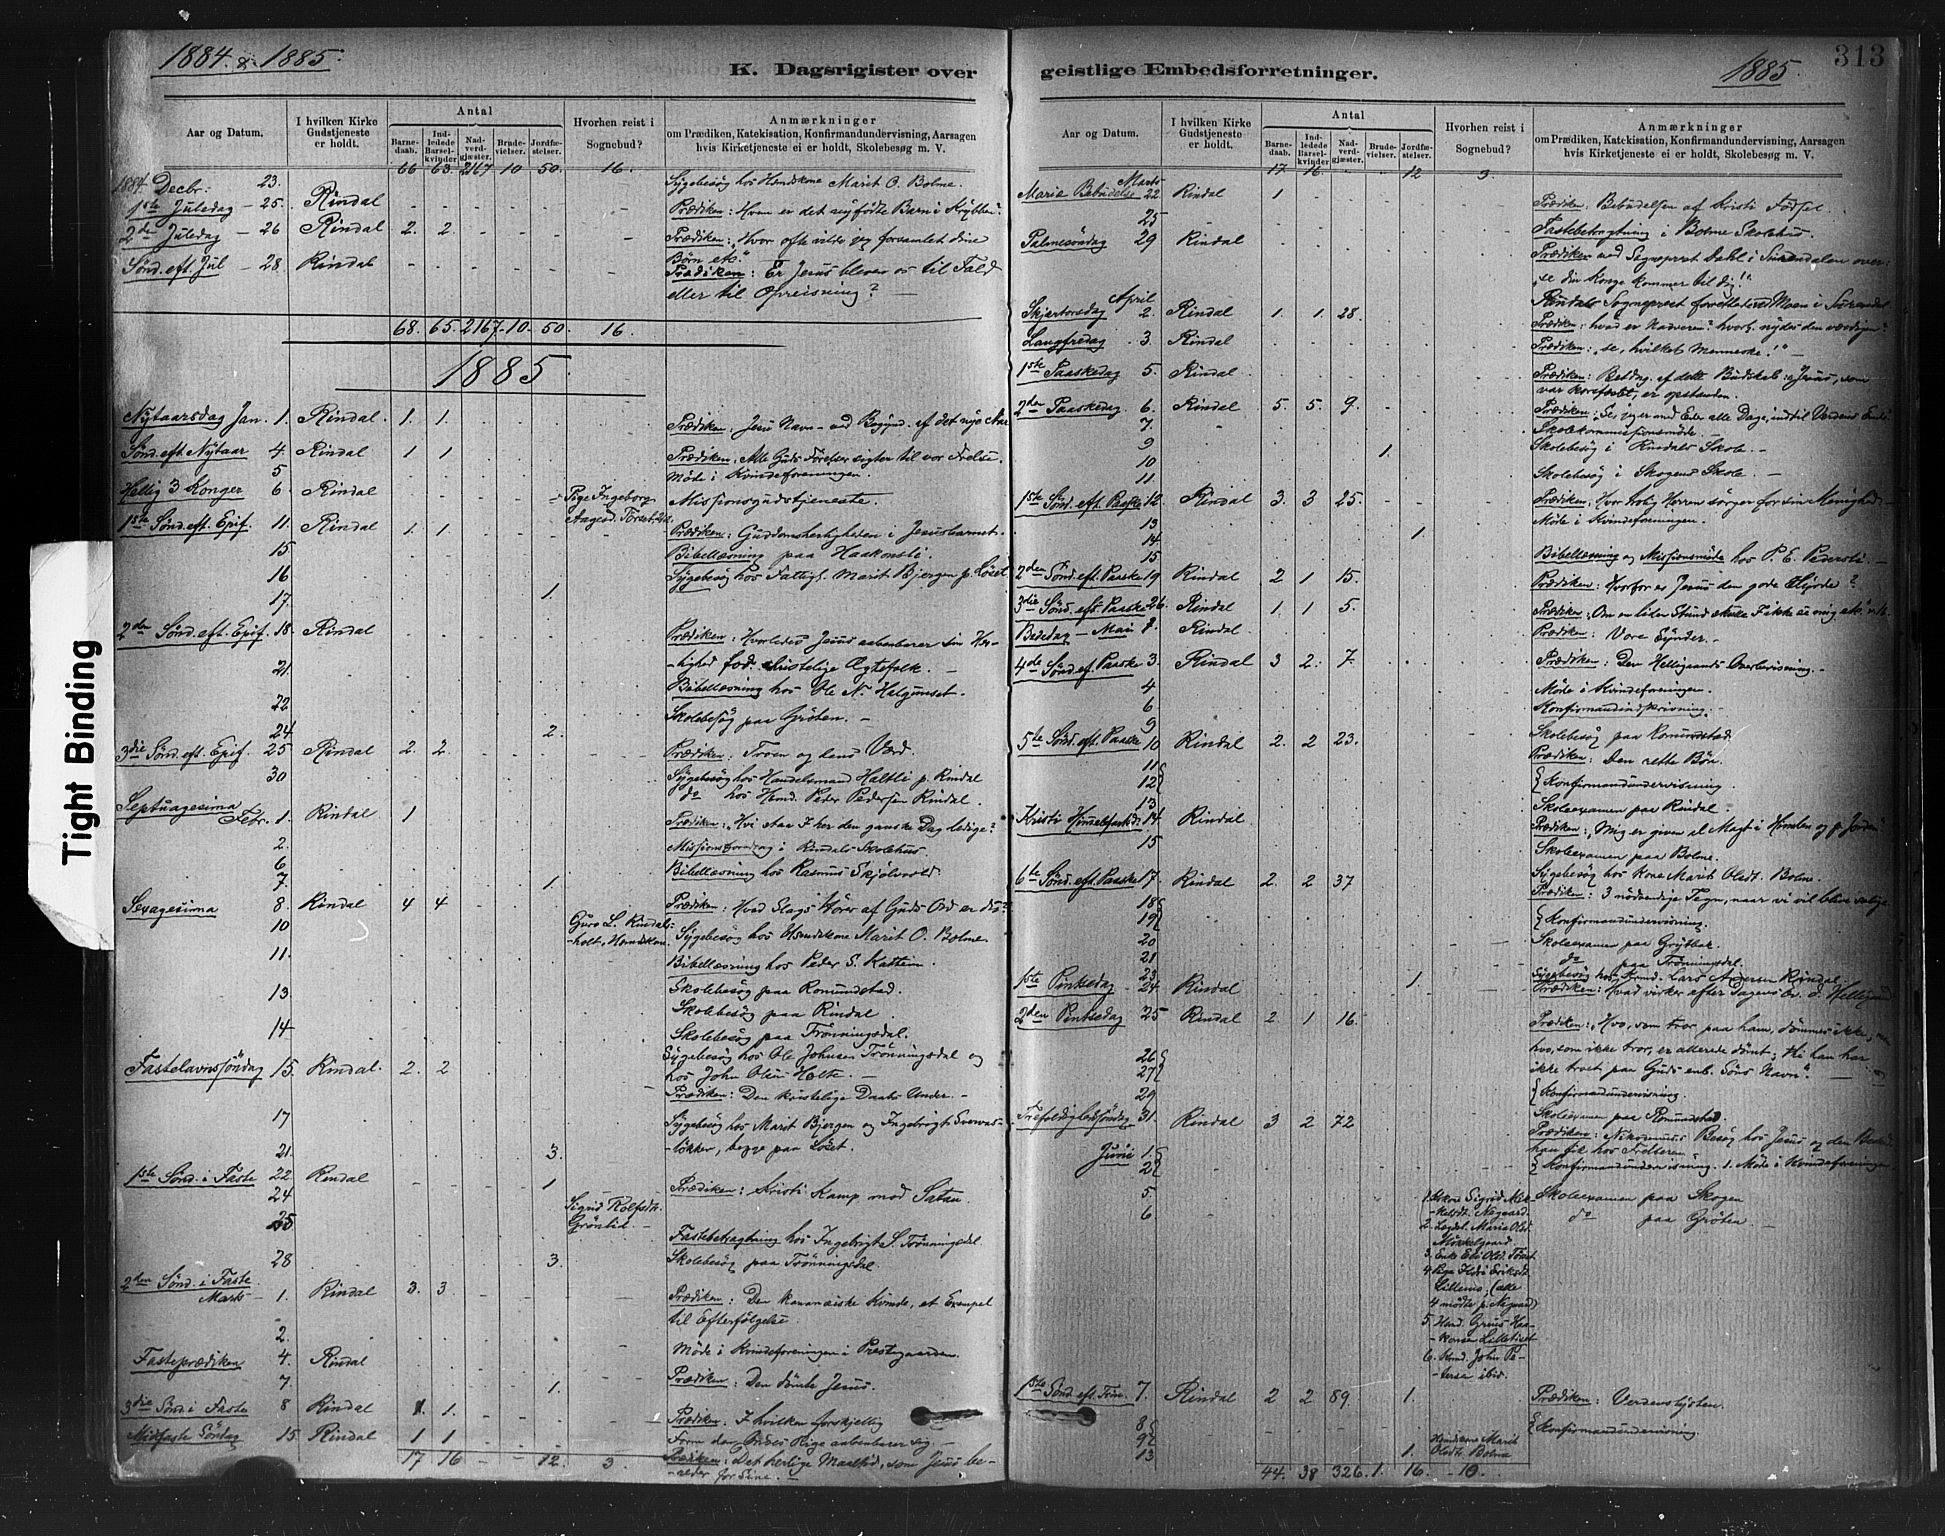 1884 & 1885.
K. Dagsrigister over
Aar og Datum.
I hvilken Kirke Gudstjeneste er holdt.
Antal
Barnedaab.
Indledede Barselkvinder
Nadverdgjæster.
Brudevielser.
Jordfæstelser.
Hvorhen reist i Sognebud?
Anmærkninger
om Prædiken, Katekisation, Konfirmandundervisning, Aarsagen
hvis Kirketjeneste ei er holdt, Skolebesøg m. V.
66 63. 2167 10 50. 16.
1884 Decbr: 23. Sygebesög hos Marit O. Bolme.
1ste Juledag - 25. Rindal Prædiken: Hvem er det nyfödte Barn i Krybben?
2den Juledag - 26 Rindal 2. 2. Prædiken: "Hvor ofte vilde jeg forsamlet dine
Börn etc."
Sönd. eft. Jul - 28. Rindal Prædiken: Er Jesus bleven os til Fald
eller til Opreisning?
68. 65. 2167. 10. 50. 16.
1885
Nytaarsdag Jan. 1. Rindal. 1. 1. Prædiken: Jesu Navn - ved Begynd. af det nye Aar
Sönd. eft. Nytaar 4. Rindal 1 1 Prædiken: Alle Guds Förelser sigter til vor Frelse.
5 Möde i Kvindeforeningen
Hellig 3 Konger 6 Rindal Pige Ingeborg Missionsgudstjeneste
1ste Sönd. eft. Epif. 11. Rindal 1. 1 Prædiken: Guddomsherligheden i Jesusbarnet.
15 Bibellæsning paa Haakonsli.
16 Sygebesög hos Fattigl. Marit Bjergen p. Löset
17. 1.
2den Sönd. eft. Epif. 18. Rindal Prædiken: Hvorledes Jesus aabenbarer sin Her-
-lighed for christelige Ægtefolk. -
21. Bibellæsning hos Ole N. Halgunset.
22 Skolebesög paa Gröten. -
24 2.
3die Sönd. eft. Epif. 25 Rindal 2. 2. Prædiken: Troen og dens Værd.
30 Sygebesög hos Handelsmand Haltli p. Rindal
do hos Peder Pedersen Rindal.
Septuagesima
Febr. 1. Rindal 1 Prædiken: "Hvi staa I her den ganske Dag ledige?
2. Missionsforedrag i Rindals Skolehus.
6 Bibellæsning hos Rasmus Skjölsvold.
7. 1.
Sexagesima 8 Rindal 4 4 Prædiken: Hvad Slags Hörer af Guds Ord er du?
10 Guro L. Rindals-
-holt, Sygebesög hos Marit O. Bolme.
11. Bibellæsning hos Peder S. Kattem.
13 Skolebesög paa Romundstad.
Skolebesög paa Rindal.
14 Skolebesög paa Trönningsdal.
Sygebesög hos Ole Johnsen Trönningsdal og
hos John Olsen Holte. -
Fastelavnssöndag 15. Rindal. 2. 2 Prædiken: Den kristelige Daabs Under. -
17 Sygebesög hos Marit Bjergen og Ingebrigt
-lökken, begge paa Löset.
21. 3.
1ste Sönd. i Faste 22 Rindal 1 Prædiken: Kristi Kamp mod Satan.
24 Sigrid Rolfsdt.
25 Grönlid. - Fastebetragtning hos Ingebrigt S. Trönningsdal
28 3. Skolebesög paa Trönningsdal.
2den Sönd. i Faste
Marts - 1. Rindal 3. 3 Prædiken: Den kananæiske Kvinde, et Exempel
til Efterfölgelse.
2. Möde i Kvindeforeningen i Prestegaarden.
Fasteprædiken 4. Rindal Prædiken: Den dömte Jesus.
7. 1.
3die Sönd. i Faste 8 Rindal 1. 1. Prædiken: I hvilken forskjellig
Form Guds Rige aabenbarer sig -
Midfaste Söndag 15. Rindal 1 1 Prædiken: Det herlige Maaltid, som Jesus be-
-reder for Sine. -
17 16 12. 3.
geistlige Embedsforretninger.
1885.
313
Aar og Datum.
I hvilken Kirke Gudstjeneste er holdt.
Antal
Barnedaab.
Indledede Barselkvinder
Nadverdgjæster.
Brudevielser.
Jordfæstelser.
Hvorhen reist i Sognebud?
Anmærkninger
om Prædiken, Katekisation, Konfirmandundervisning, Aarsagen
hvis Kirketjeneste ei er holdt, Skolebesøg m. V.
17 16 12 3
Marts
Mariæ Bebudelse 22 Rindal 1 Prædiken. Bebudelsen af Kristi Födsel.
25 Fastebetragtning i Bolme Skolehus.
Palmesöndag 29 Rindal Prædiken ved Sogneprest Dahl i Surendalen over:
"se din Konge kommer til dig!"
April
Skjærtorsdag 2. Rindal 1. 1. 28 Prædiken: hvad er Nadveren? hvorl. nydes den værdigen?
Langfredag 3. Rindal Prædiken: "se, hvilket Menneske!" -
1ste Paaskedag 5. Rindal Prædiken: Betdng. af dette Budskab: Jesus, som
var korsfæstet, er opstanden.
2den Paaskedag 6. Rindal 5. 5. 9. Prædiken: Se, jeg er med Eder alle Dage, indtil Verdens Ende
7 Skolekommissionsmöde.
9 1. Skolebesög i Rindals Skole. -
10 Skolebesög i Skogens Skole. -
11.
1ste Sönd. eft. Paaske 12. Rindal 3. 3 25. Prædiken: Hvor Herren sörger for sin Menighed -
13 Möde i Kvindeforeningen.
14. 1.
15 Bibellæsning og Missionsmöde hos P. E. Pedersli. -
2den Sönd. eft. Paaske 19 Rindal 2 1 15. Prædiken: Hvorfor er Jesus den gode Hyrde?
3die Sönd. eft. Paaske 26. Rindal 1. 1 5. Prædiken: Om en liden Stund skulle I ikke se mig etc.
Bededag - Mai 1. Rindal Prædiken: Vore Synder. -
4de Sönd. ef. Paaske 3. Rindal 3 2. 7. Prædiken: Den Helligaands Overbevisning. -
4 Möde i Kvindeforeningen.
6 Konfirmandindskrivning. -
9 Skolebesög paa Romundstad
5te Sönd. eft. Paaske 10 Rindal 2. 2 23. Prædiken: Den rette Bön.
11 12 Konfirmandundervisning
13 Skoleexamen paa Rindal
Kristi Himmelfartsd. 14 Rindal Prædiken: "Mig er given al Magt i Himlen og p. Jorden"
15 Skoleexamen paa Bolme.
Sygebesög hos Kone Marit Olsdt. Bolme.
6te Sönd. eft. Paaske 17. Rindal 2. 2 37 Prædiken: 3 nödvendige Tegn, naar vi vil blive salige
18 19 Konfirmandundervisning.
20 Skoleexamen paa Grytbak
21 do paa Trönningsdal.
23 1. Sygebesög hos Lars Andersen Rindal
1ste Pinsedag - 24 Rindal Prædiken: Hvad virker efter Dagens Ev. d. Helligaand
2den Pintsedag 25 Rindal 2 1 16. Prædiken: "Hvo, som tror paa ham, dömmes ikke; men
hvo, som ikke tror, er allerede dömt; thi han har
ikke troet paa Guds enb. Söns Navn".
26 27 Konfirmandundervisning.
29 Skoleexamen paa Romundstad.
Trefoldighedssöndag 31. Rindal 3 2 72 Prædiken: Nikodemus's Besög hos Jesus og den
han fik hos Frelseren.
Juni 1. 2 Konfirmandundervisning. 1. Möde i Kvindeforeningen
5 Skoleexamen paa Skogen
6 do paa Gröten. -
1. Sigrid Mik-
-kelsdt. Aagaard.
2. Maria Olsd
3. Enke Olsd.
4 Pige Eriksdt.
Lillemo, (alle
4 mödte p. Aagaard)
5 Haa-
-konsen Lilletiset
6. John Pe-
-tersa ibid.
1ste Sönd. eft. Trin. 7. Rindal 2 2 89. 1. Prædiken: Verdenslysten.
8 9 Konfirmandundervisning.
13 1. Marit
Olsdt. Bolme
44. 38 326. 1. 16. 10.
Tight Binding